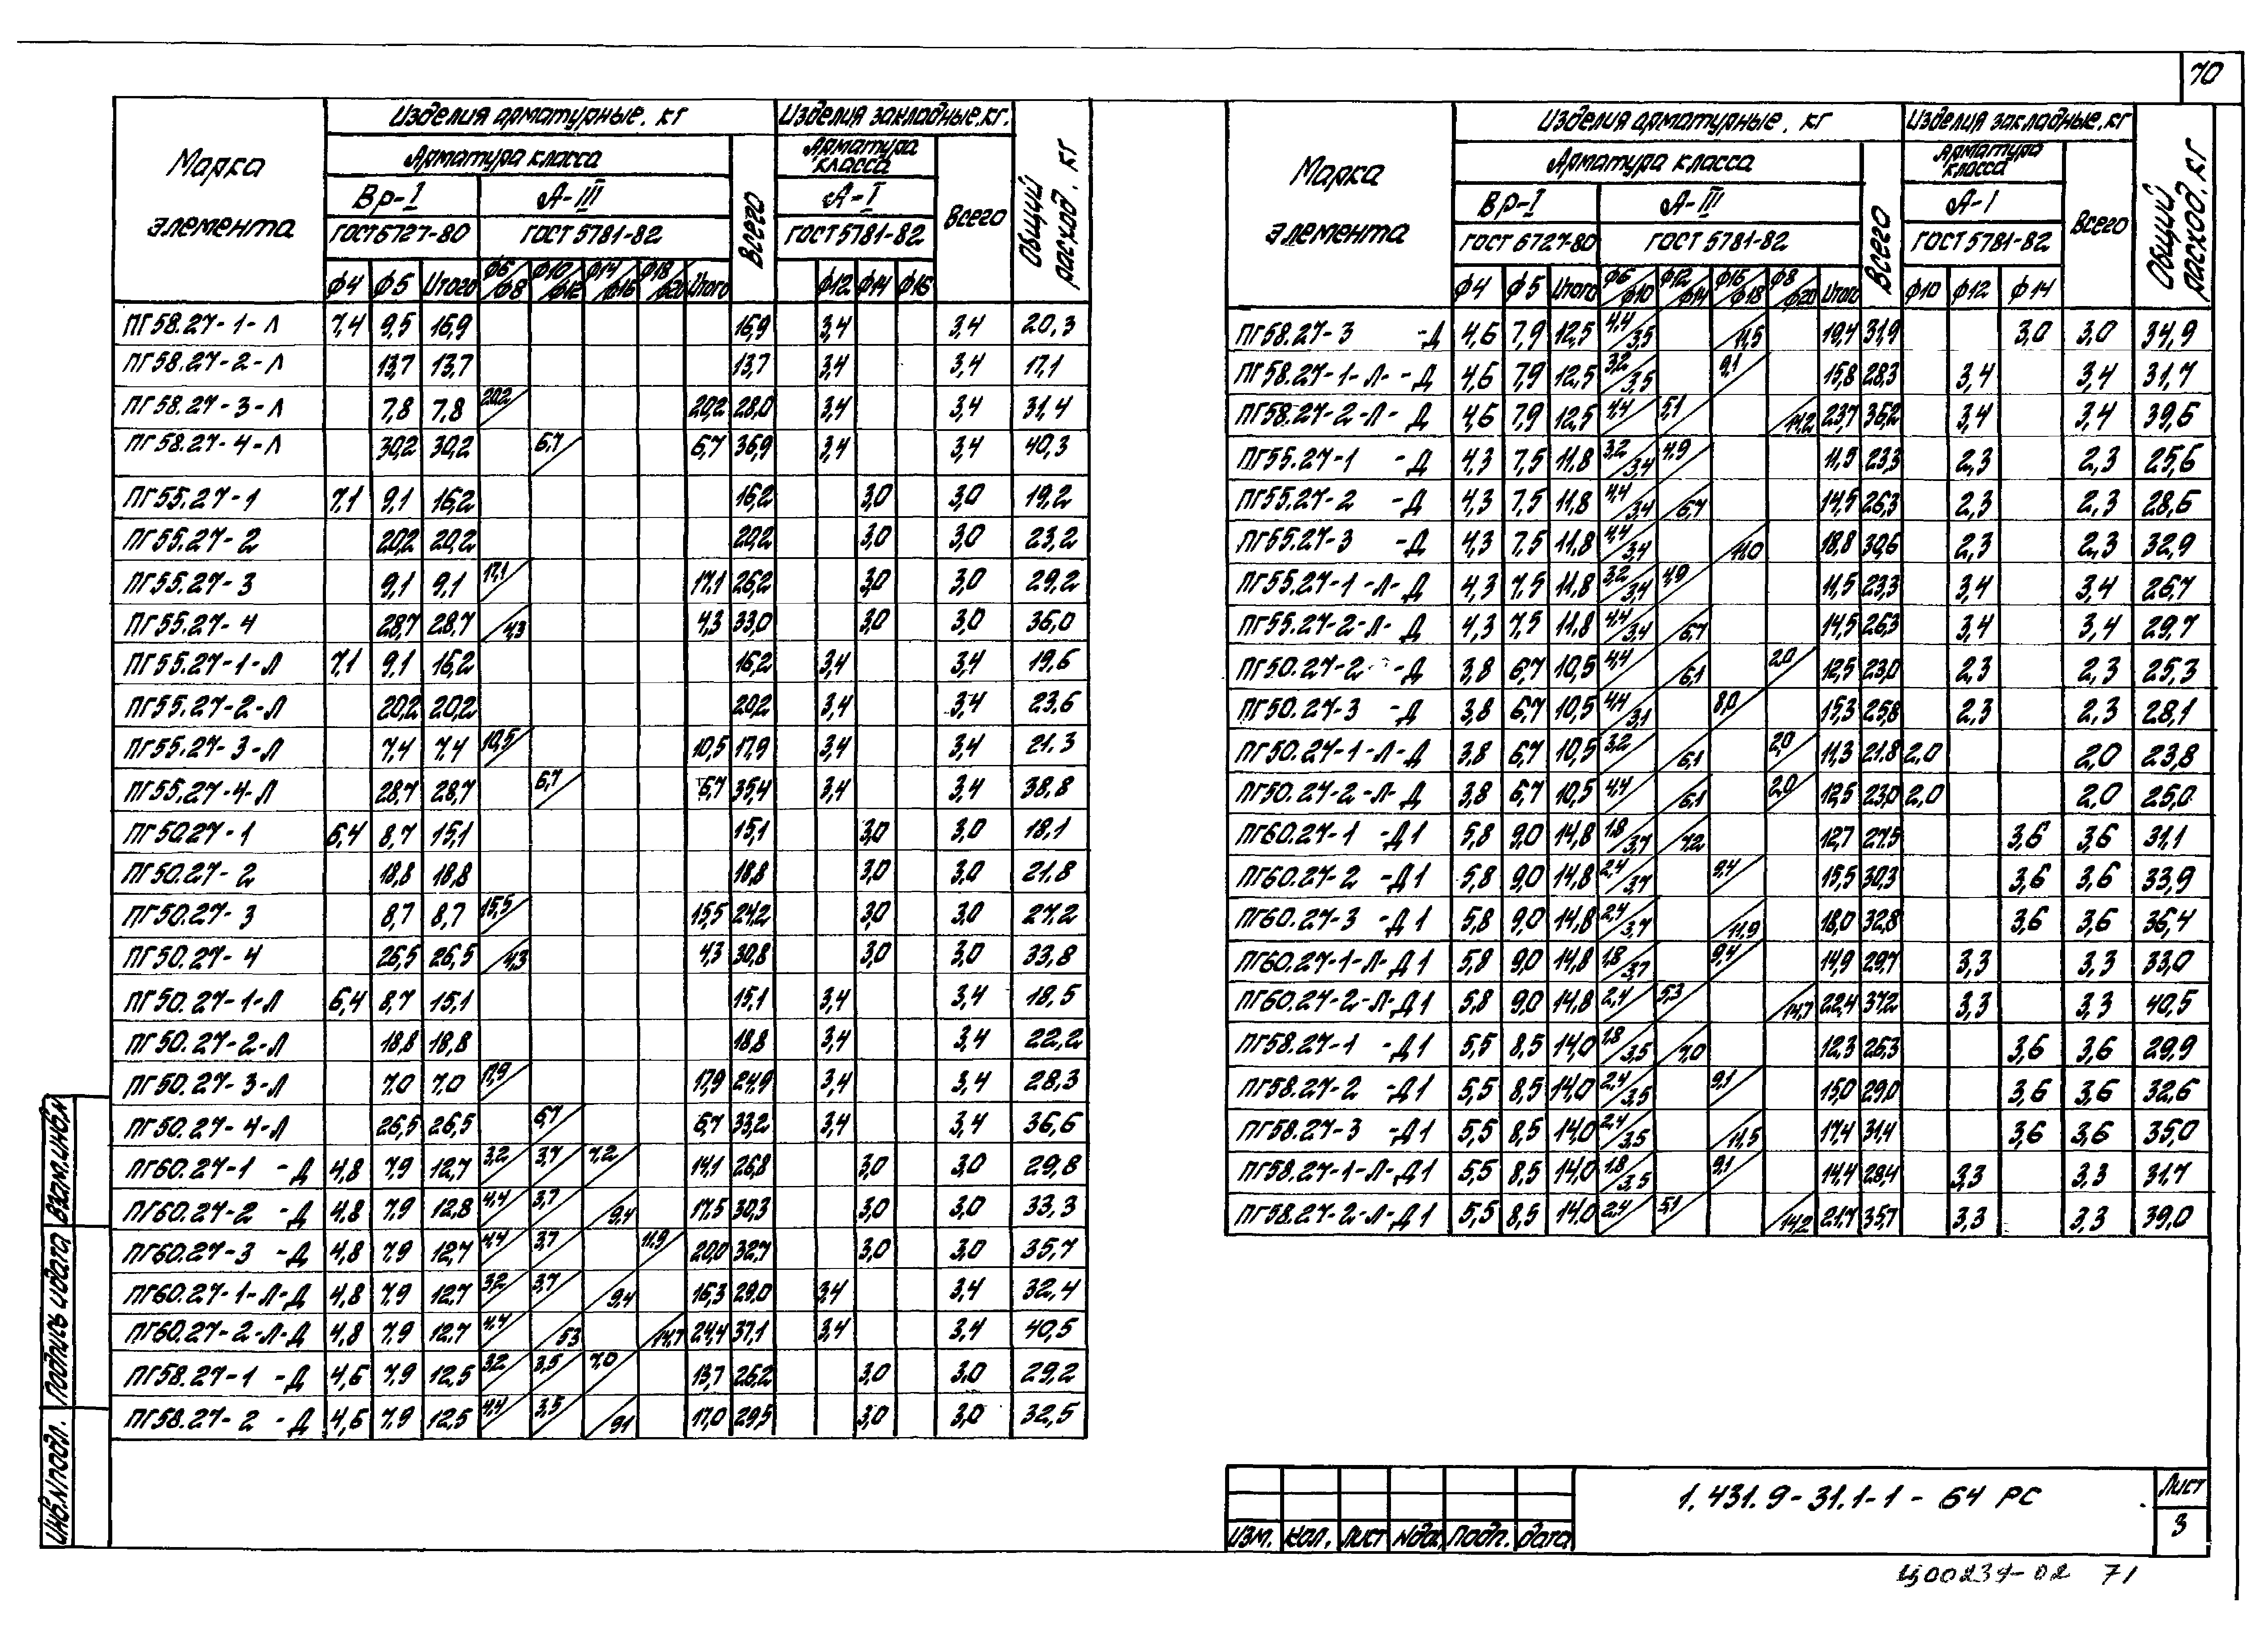 70
Марка элемента
Изделия арматурные, кг
Изделия закладные, кг.
Общий расход, кг
Арматура класса
Всего
Арматура класса
Всего
Вр-I
А-III
А-I
ГОСТ 6727-80
ГОСТ 5781-82
ГОСТ 5781-82
ф4 ф5 Итого ф6/ф8 ф10/ф12 ф14/ф16 ф18/ф20 Итого ф12 ф14 ф16
ПГ58.27-1-Л 7,4 9,5 16,9 16,9 3,4 3,4 20,3
ПГ58.27-2-Л 13,7 13,7 13,7 3,4 3,4 17,1
ПГ58.27-3-Л 7,8 7,8 20,2/ 20,2 28,0 3,4 3,4 31,4
ПГ58.27-4-Л 30,2 30,2 6,7/ 6,7 36,9 3,4 3,4 40,3
ПГ55.27-1 7,1 9,1 16,2 16,2 3,0 3,0 19,2
ПГ55.27-2 20,2 20,2 20,2 3,0 3,0 23,2
ПГ55.27-3 9,1 9,1 17,1/ 17,1 26,2 3,0 3,0 29,2
ПГ55.27-4 28,7 28,7 /4,3 4,3 33,0 3,0 3,0 36,0
ПГ55.27-1-Л 7,1 9,1 16,2 16,2 3,4 3,4 19,6
ПГ55.27-2-Л 20,2 20,2 20,2 3,4 3,4 23,6
ПГ55.27-3-Л 7,4 7,4 10,5/ 10,5 17,9 3,4 3,4 21,3
ПГ55.27-4-Л 28,7 28,7 6,7/ 6,7 35,4 3,4 3,4 38,8
ПГ50.27-1 6,4 8,7 15,1 15,1 3,0 3,0 18,1
ПГ50.27-2 18,8 18,8 18,8 3,0 3,0 21,8
ПГ50.27-3 8,7 8,7 15,5/ 15,5 24,2 3,0 3,0 27,2
ПГ50.27-4 26,5 26,5 /4,3 4,3 30,8 3,0 3,0 33,8
ПГ50.27-1-Л 6,4 8,7 15,1 15,1 3,4 3,4 18,5
ПГ50.27-2-Л 18,8 18,8 18,8 3,4 3,4 22,2
ПГ50.27-3-Л 7,0 7,0 17,9/ 17,9 24,9 3,4 3,4 28,3
ПГ50.27-4-Л 26,5 26,5 6,7/ 6,7 33,2 3,4 3,4 36,6
ПГ60.27-1 -Д 4,8 7,9 12,7 3,2/ 3,7/ 7,2/ 14,1 26,8 3,0 3,0 29,8
ПГ60.27-2 -Д 4,8 7,9 12,8 4,4/ 3,7/ /9,4 17,5 30,3 3,0 3,0 33,3
ПГ60.27-3 -Д 4,8 7,9 12,7 4,4/ 3,7/ 11,9/ 20,0 32,7 3,0 3,0 35,7
ПГ60.27-1-Л-Д 4,8 7,9 12,7 3,2/ 3,7/ /9,4 16,3 29,0 3,4 3,4 32,4
ПГ60.27-2-Л-Д 4,8 7,9 12,7 4,4/ /5,3 /14,7 24,4 37,1 3,4 3,4 40,5
ПГ58.27-1 -Д 4,6 7,9 12,5 3,2/ 3,5/ 7,0/ 13,7 26,2 3,0 3,0 29,2
ПГ58.27-2 -Д 4,6 7,9 12,5 4,4/ 3,5/ /9,1 17,0 29,5 3,0 3,0 32,5
Марка элемента
Изделия арматурные, кг
Изделия закладные, кг
Общий расход, кг
Арматура класса
Всего
Арматура класса
Всего
Вр-I
А-III
А-I
ГОСТ 6727-80
ГОСТ 5781-82
ГОСТ 5781-82
ф4 ф5 Итого ф6/ф10 ф12/ф14 ф16/ф18 ф8/ф20 Итого ф10 ф12 ф14
ПГ58.27-3 -Д 4,6 7,9 12,5 4,4/3,5 /11,5 19,4 31,9 3,0 3,0 34,9
ПГ58.27-1-Л- -Д 4,6 7,9 12,5 3,2/3,5 9,1/ 15,8 28,3 3,4 3,4 31,7
ПГ58.27-2-Л- Д 4,6 7,9 12,5 4,4/ 5,1/ /14,2 23,7 36,2 3,4 3,4 39,6
ПГ55.27-1 -Д 4,3 7,5 11,8 3,2/3,4 4,9/ 11,5 23,3 2,3 2,3 25,6
ПГ55.27-2 -Д 4,3 7,5 11,8 4,4/3,4 /6,7 14,5 26,3 2,3 2,3 28,6
ПГ55.27-3 -Д 4,3 7,5 11,8 4,4/3,4 /11,0 18,8 30,6 2,3 2,3 32,9
ПГ55.27-1-Л-Д 4,3 7,5 11,8 3,2/3,4 4,9/ 11,5 23,3 3,4 3,4 26,7
ПГ55.27-2-Л- Д 4,3 7,5 11,8 4,4/3,4 /6,7 14,5 26,3 3,4 3,4 29,7
ПГ50.27-2 -Д 3,8 6,7 10,5 4,4/ /6,1 2,0/ 12,5 23,0 2,3 2,3 25,3
ПГ50.27-3 -Д 3,8 6,7 10,5 4,4/3,1 8,0/ 15,3 25,8 2,3 2,3 28,1
ПГ50.27-1-Л-Д 3,8 6,7 10,5 3,2/ /6,1 2,0/ 11,3 21,8 2,0 2,0 23,8
ПГ50.27-2-Л-Д 3,8 6,7 10,5 4,4/ /6,1 2,0/ 12,5 23,0 2,0 2,0 25,0
ПГ60.27-1 -Д1 5,8 9,0 14,8 1,8/3,7 /7,2 12,7 27,5 3,6 3,6 31,1
ПГ60.27-2 -Д1 5,8 9,0 14,8 2,4/3,7 9,4/ 15,5 30,3 3,6 3,6 33,9
ПГ60.27-3 -Д1 5,8 9,0 14,8 2,4/3,7 /11,9 18,0 32,8 3,6 3,6 36,4
ПГ60.27-1-Л-Д1 5,8 9,0 14,8 1,8/3,7 9,4/ 14,9 29,7 3,3 3,3 33,0
ПГ60.27-2-Л-Д1 5,8 9,0 14,8 2,4/ 5,3/ /14,7 22,4 37,2 3,3 3,3 40,5
ПГ58.27-1 -Д1 5,5 8,5 14,0 1,8/3,5 /7,0 12,3 26,3 3,6 3,6 29,9
ПГ58.27-2 -Д1 5,5 8,5 14,0 2,4/3,5 9,1/ 15,0 29,0 3,6 3,6 32,6
ПГ58.27-3 -Д1 5,5 8,5 14,0 2,4/3,5 /11,5 17,4 31,4 3,6 3,6 35,0
ПГ58.27-1-Л-Д1 5,5 8,5 14,0 1,8/3,5 9,1/ 14,4 28,4 3,3 3,3 31,7
ПГ58.27-2-Л-Д1 5,5 8,5 14,0 2,4/ 5,1/ /14,2 21,7 35,7 3,3 3,3 39,0
Инв.№подл. Подпись и дата Взам.инв.№
Изм. Кол. Лист №док. Подп. Дата
1.431.9-31.1-1-64 РС
Лист
3
Ц00234-02 71